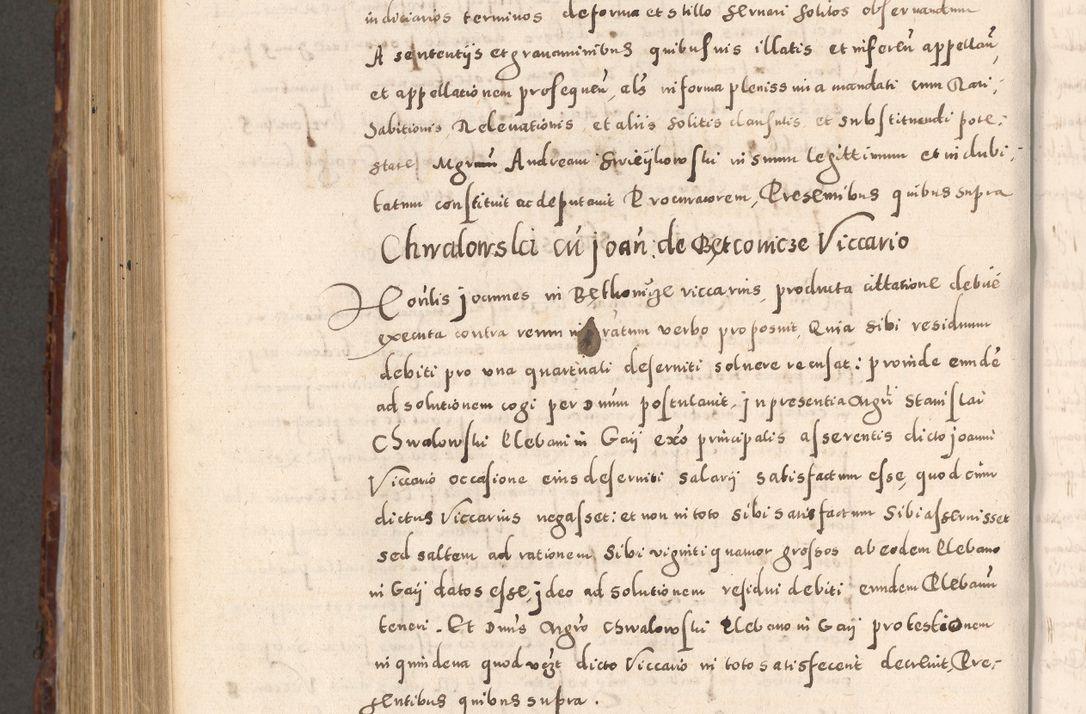 indiciarios terminos deforma et stillo servari solitos observandum
A sententijs et gravaminibus quibusvis illatis et inferen appellan,
et appellationem prosequen, als in forma plenissimia mandati cum Rati-
habitionis Relevationis et aliis solitis clausulis et substituendi pote-
state Mgrum Andream Swieÿkowski in suum legittimum et indubi-
tatum constituit ac deputavit Procuratorem, Presentibus quibus supra
Chwalowski cu joan: de Bętcowicze Viccario
Honlis joannes in Bęthow viccarius, producta cittatione debite
executa contra reum verbo proposuit, Quia sibi residuum
debiti pro una quartuali deserviti solvere recusat: proinde eunde
ad solutionem cogi per Dnum postulavit. jn presentia Mgri Stanislai
Chwalowski Plebani in Gaÿ exo principalis asserentis dicto joanni
Viccario occasione eius deserviti salarÿ satisfactum esse, quod cum
dictus Viccarius negasset: et non in toto sibi satisfactum sibi asseruisset
sed saltem ad rationem sibi viginti quatuor grossos ab eodem Plebano
in Gaÿ datos esse, jdeo ad solutionem residui debiti eundem Plebanu
teneri. Et Dnus Mgro Chwalowski Plebano in Gaÿ protestionem
in quindena quod dicto Viccario in toto satisfecerit decrevit, Pre-
sentibus quibus supra.